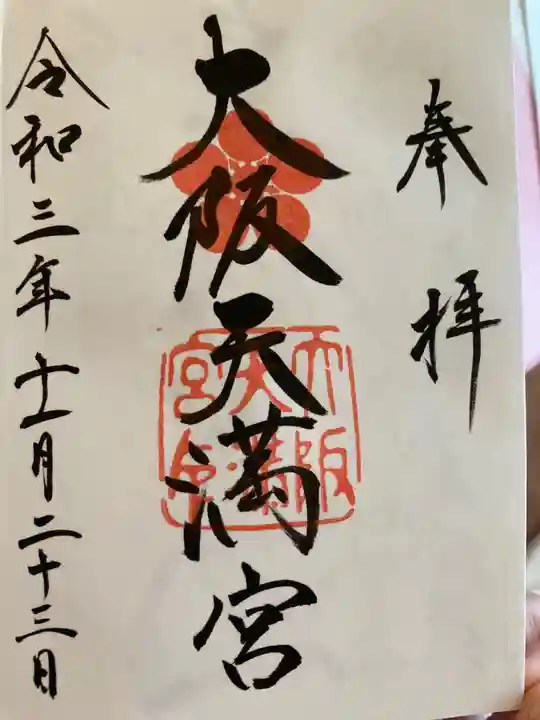 奉拝
大阪天満宮
大阪天満宮印
令和三年十一月二十三日